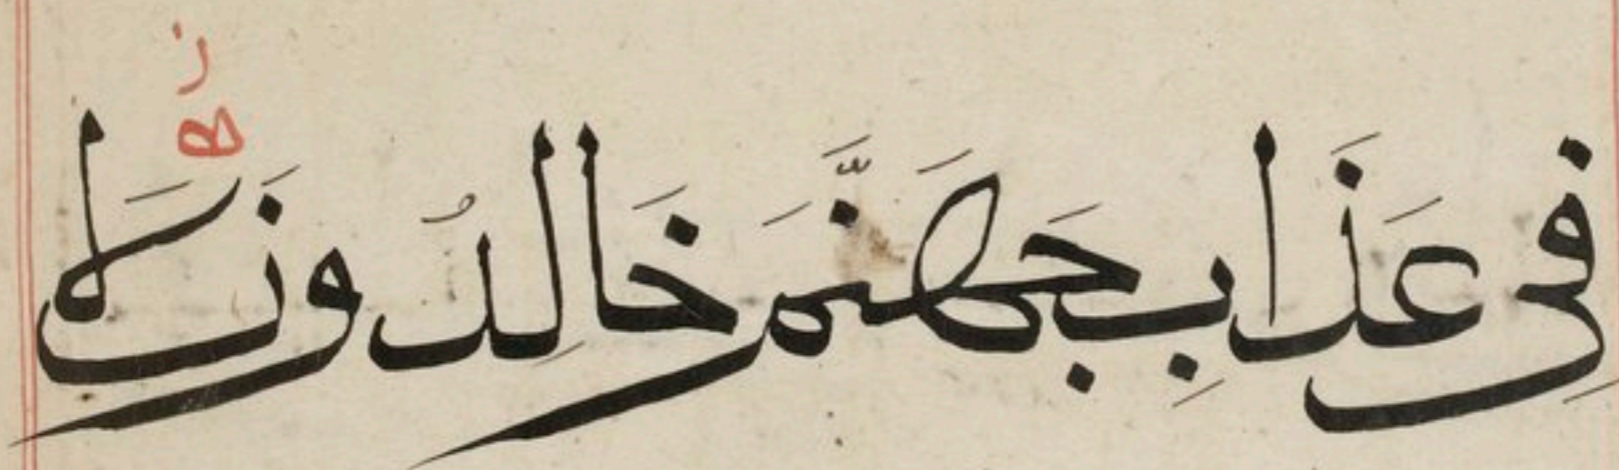 ز
فِي عَذَابِ جَهَنَّمَ خَالِدُونَ لَا